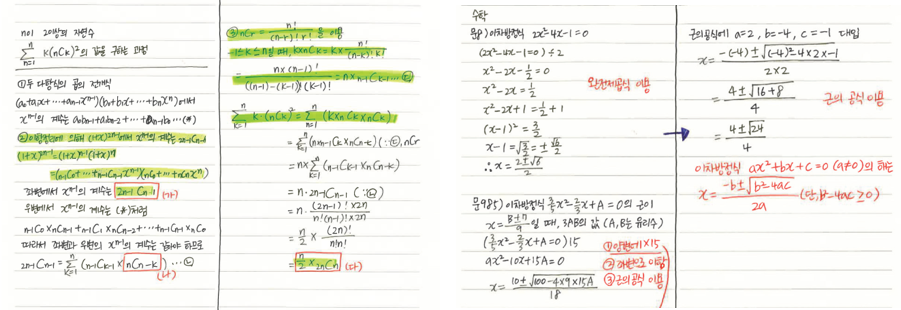 n이 2이상의 자연수
∑_{n=1}^{n} k(nCk)²의 값을 구하는 과정
①두 다항식의 곱의 전개식
(a₀+a₁x+…+aₙ₋₁xⁿ⁻¹)(b₀+b₁x+…+bₙxⁿ)에서
xⁿ⁻¹의 계수는 a₀bₙ₋₁+a₁bₙ₋₂+…+aₙ₋₁b₀…(#)
(1+x)²ⁿ⁻¹=(1+x)ⁿ⁻¹(1+x)ⁿ
=(n-1C0+…+n-1Cn-1xⁿ⁻¹)(nC0+…+nCnxⁿ)
좌변에서 xⁿ⁻¹의 계수는 2n-1Cn-1 (가)
우변에서 xⁿ⁻¹의 계수는 (#)처럼
n-1C0×nCn-1+n-1C1×nCn-2+…+n-1Cn-1×nC0
따라서 좌변과 우변의 xⁿ⁻¹의 계수는 같아야 하므로
2n-1Cn-1=∑_{k=1}^{n}(n-1Ck-1×nCn-k)…
(나)
③nCr=n!/((n-r)!r!)을 이용
1≤k≤n일 때, k×nCk=k×n!/((n-k)!k!)
=n×(n-1)!/(((n-1)-(k-1))!(k-1)!)=n×n-1Ck-1…
∑_{k=1}^{n} k·(nCk)²=∑_{n=1}^{n}(k×nCk×nCk)
=∑_{k=1}^{n}(n×n-1Ck×nCn-k)
=n×∑_{k=1}^{n}(n-1Ck-1×nCn-k)
=n·2n-1Cn-1
=n·(2n-1)!×2n/(n!(n-1)!×2n)
=n/2×(2n)!/(n!n!)
=n/2×2nCn (다)
수학
이차방정식 2x²-4x-1=0
(2x²-4x-1=0)÷2
x²-2x-1/2=0
x²-2x=1/2 완전제곱식 이용
x²-2x+1=1/2+1
(x-1)²=3/2
x-1=√(3/2)=±√6/2
∴x=(2±√6)/2
문985) 이차방정식 3/5x²-2/3x+A=0의 근이
일 때, 3AB의 값 (A,B는 유리수)
(3/5x²-2/3x+A=0)15 ①양변에×15
9x²-10x+15A=0
x=(10±√(100-4×9×15A))/18 ③근의공식 이용
근의공식에 a=2, b=-4, c=-1 대입
x=(-(-4)±√((-4)²-4×2×-1))/(2×2)
=(4±√(16+8))/4 근의 공식 이용
=(4±√24)/4
이차방정식 ax²+bx+c=0(a≠0)의 해는
x=(-b±√(b²-4ac))/2a (단,b²-4ac≥0)